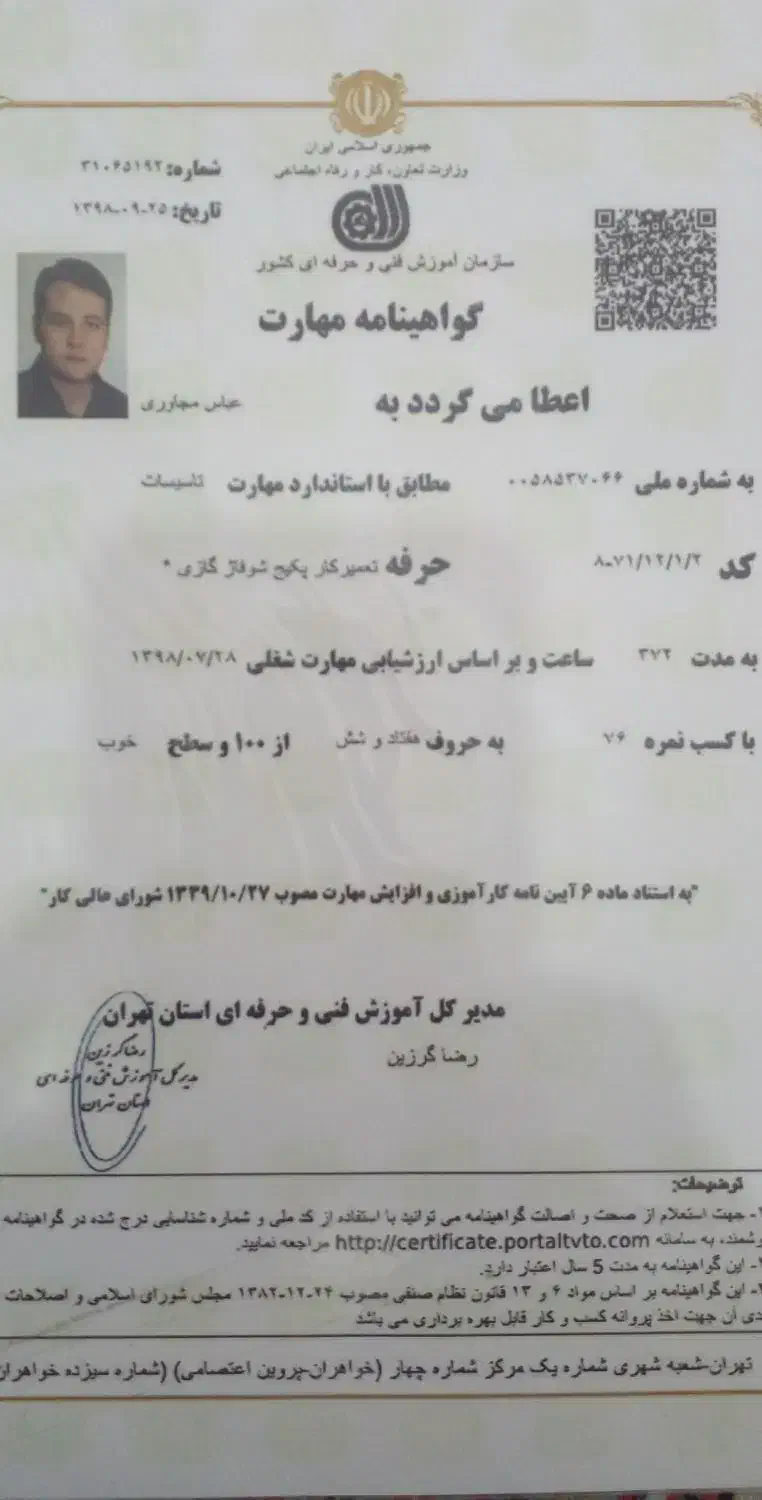 جمهوری اسلامی ایران
وزارت تعاون، کار و رفاه اجتماعی
شماره: ۳۱۰۶۵۱۹۲
تاریخ: ۱۳۹۸-۰۹-۲۵
سازمان آموزش فنی و حرفه ای کشور
گواهینامه مهارت
اعطا می گردد به عباس مجاوری
به شماره ملی ۰۰۵۸۵۳۷۰۶۶ مطابق با استاندارد مهارت تاسیسات
کد ۸-۷۱/۱۲/۱/۲ حرفه تعمیرکار پکیج شوفاژ گازی *
به مدت ۳۷۲ ساعت و بر اساس ارزشیابی مهارت شغلی ۱۳۹۸/۰۷/۲۸
با کسب نمره ۷۶ به حروف هفتاد و شش از ۱۰۰ و سطح خوب
"به استناد ماده ۶ آیین نامه کارآموزی و افزایش مهارت مصوب ۱۳۳۹/۱۰/۲۷ شورای عالی کار"
مدیر کل آموزش فنی و حرفه ای استان تهران
رضا گرزین
رضا گرزین
مدیر کل آموزش فنی و حرفه ای
استان تهران
توضیحات:
۱- جهت استعلام از صحت و اصالت گواهینامه می توانید با استفاده از کد ملی و شماره شناسایی درج شده در گواهینامه
به سامانه http://certificate.portaltvto.com مراجعه نمایید.
۲- این گواهینامه به مدت 5 سال اعتبار دارد.
۳- این گواهینامه بر اساس مواد ۶ و ۱۳ قانون نظام صنفی مصوب ۲۴-۱۲-۱۳۸۲ مجلس شورای اسلامی و اصلاحات
آن جهت اخذ پروانه کسب و کار قابل بهره برداری می باشد
تهران-شعبه شهری شماره یک مرکز شماره چهار (خواهران-پروین اعتصامی) (شماره سیزده خواهران